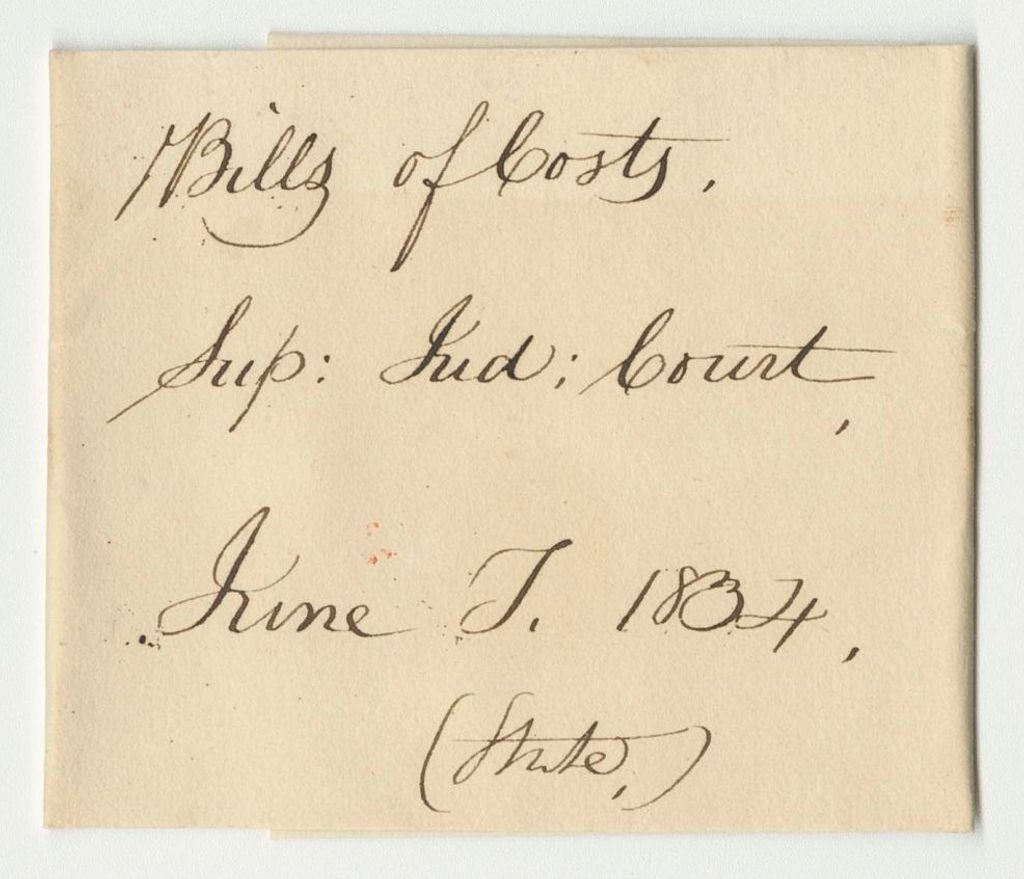 Bills of Costs.
Sup: Jud: Court,
June T. 1834,
(State,)